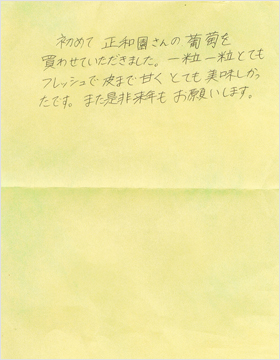 初めて 正和園さんの 葡萄を
買わせていただきました。一粒一粒とても
フレッシュで 皮まで 甘く とても 美味しかっ
たです。また是非来年も お願いします。